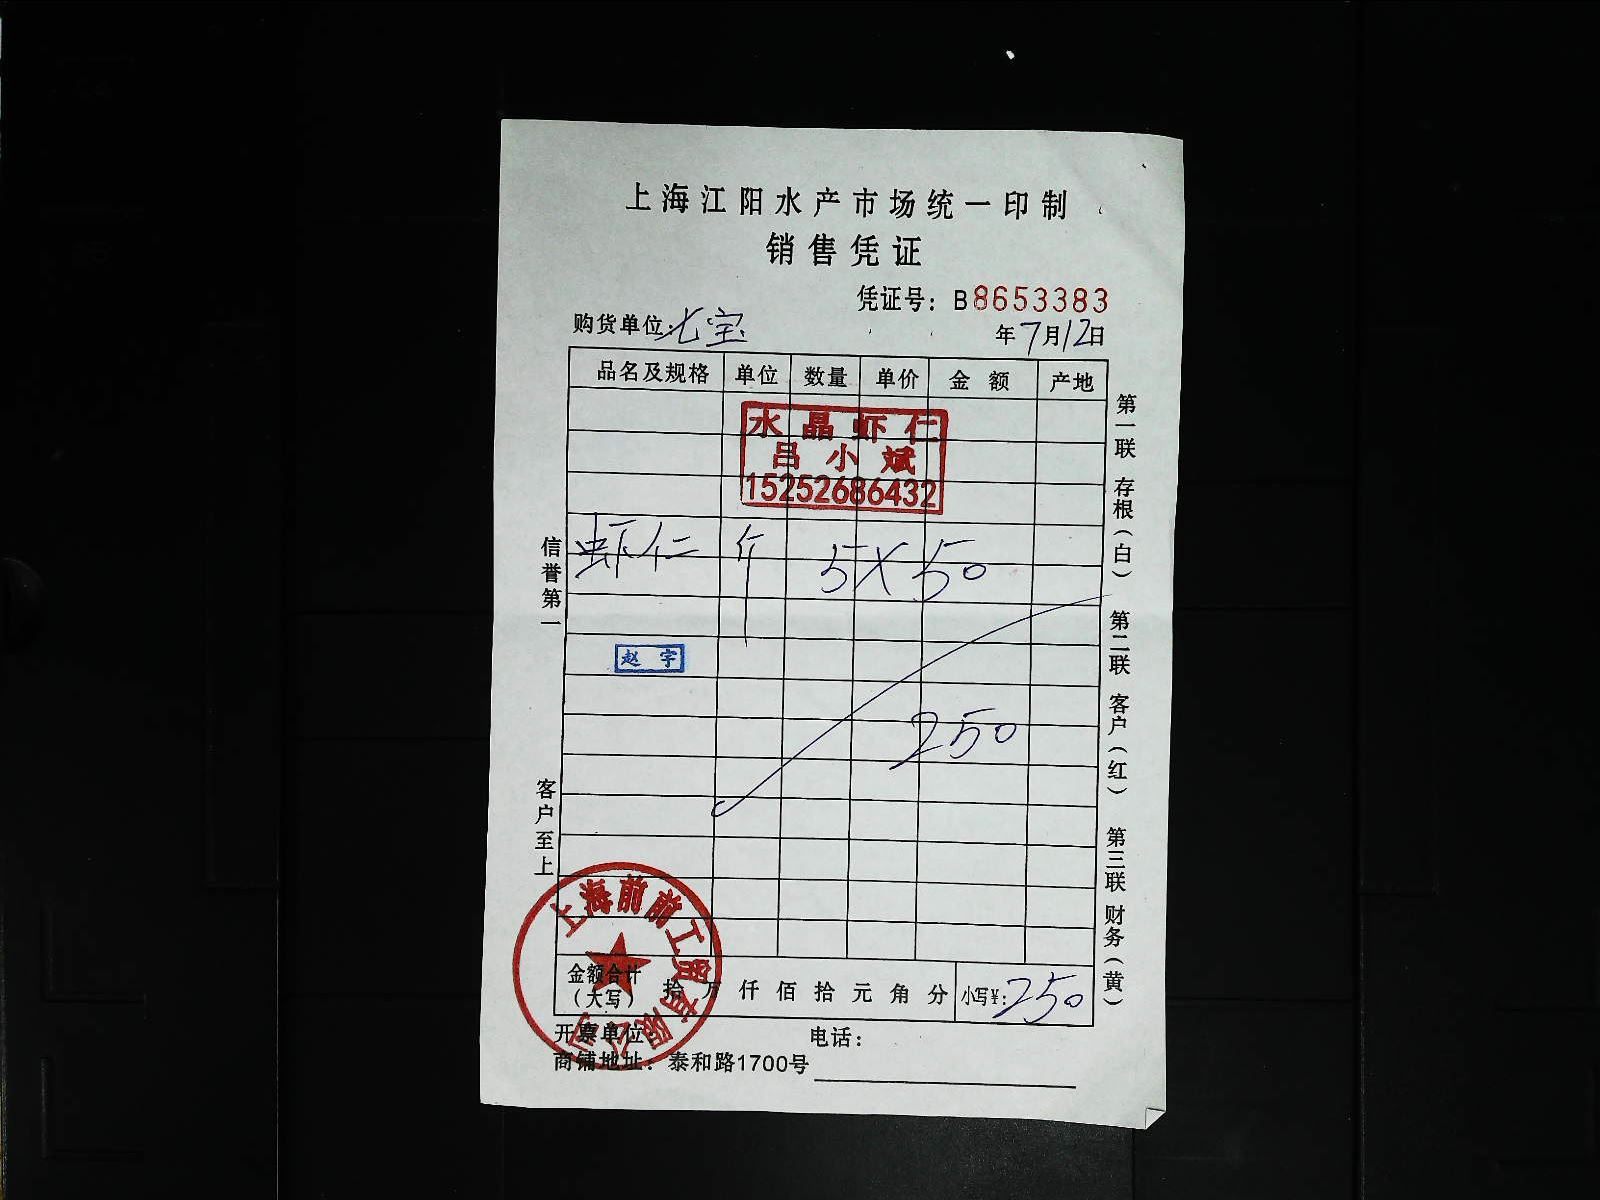 上海江阳水产市场统一印制
销售凭证
凭证号：B8653383
购货单位：七宝 年7月12日
品名及规格 单位 数量 单价 金额 产地
水晶虾仁
吕小斌
15252686432
虾仁 斤 5X50
赵宇
250
金额合计（大写） 拾万仟佰拾元角分 小写¥：250
开票单位： 电话：
商铺地址：泰和路1700号
上海前前工贸有限公司
信誉第一 客户至上
第一联 存根（白） 第二联 客户（红） 第三联 财务（黄）